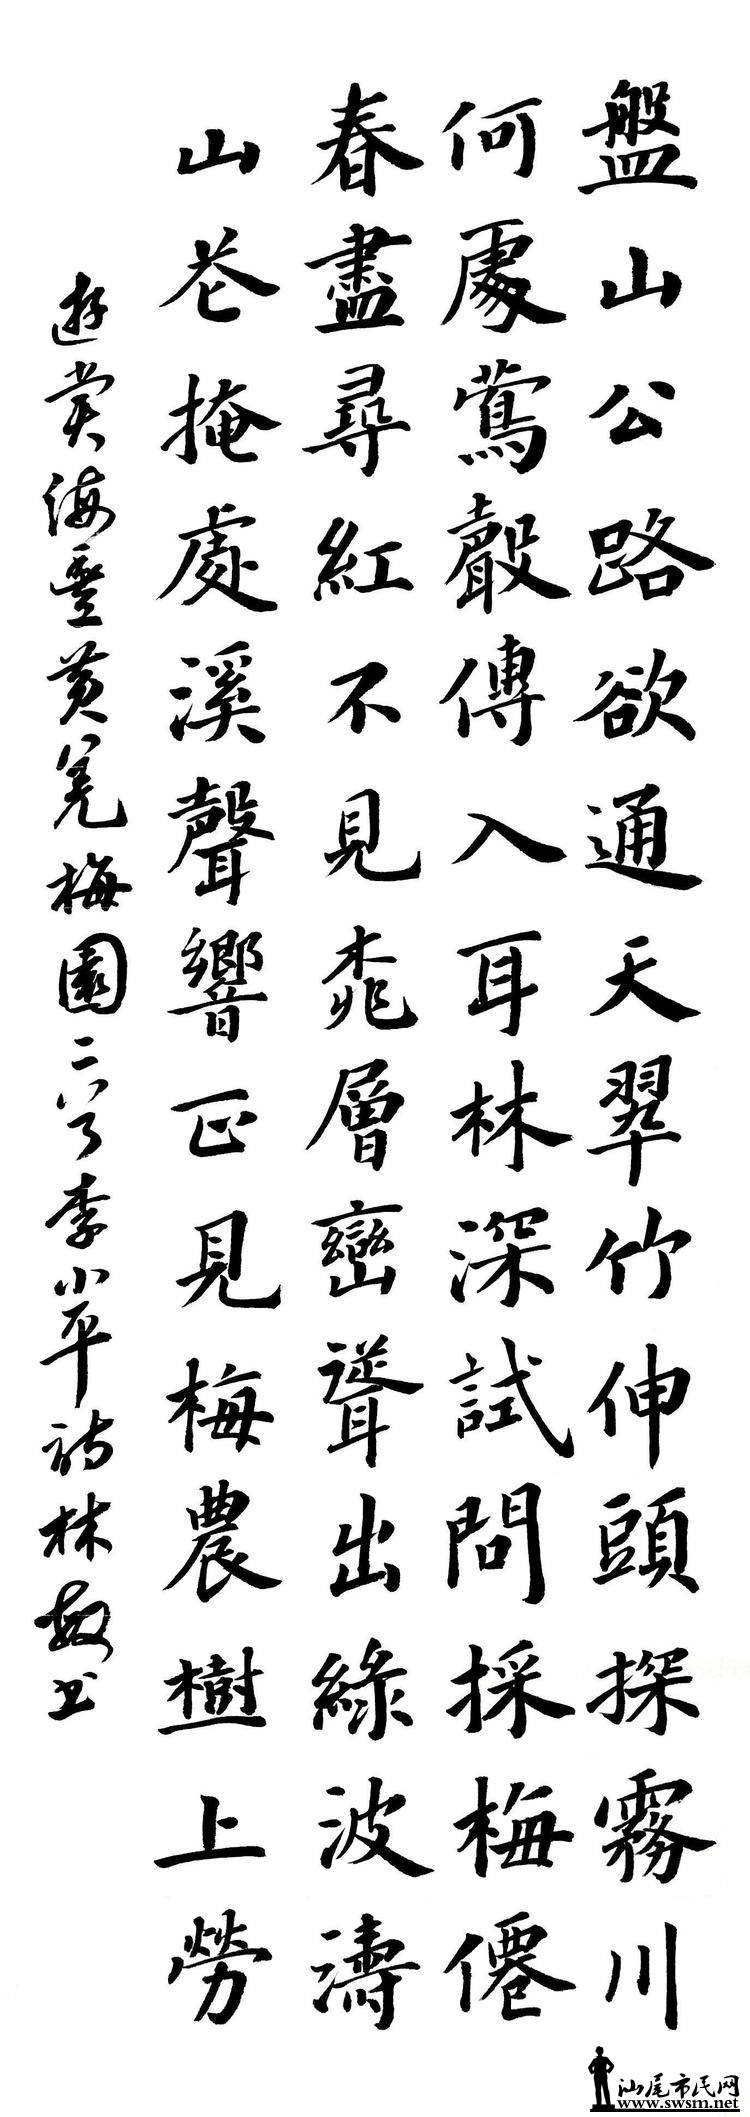 盤山公路欲通天翠竹伸頭探霧川
何處鶯聲傳入耳林深試問採梅僊
春盡尋紅不見桃層巒聳出綠波濤
山花掩處溪聲響正見梅農樹上勞
遊賞海豐黄羌梅園二首李小平詩林敏书
汕尾市民网
www.swsm.net